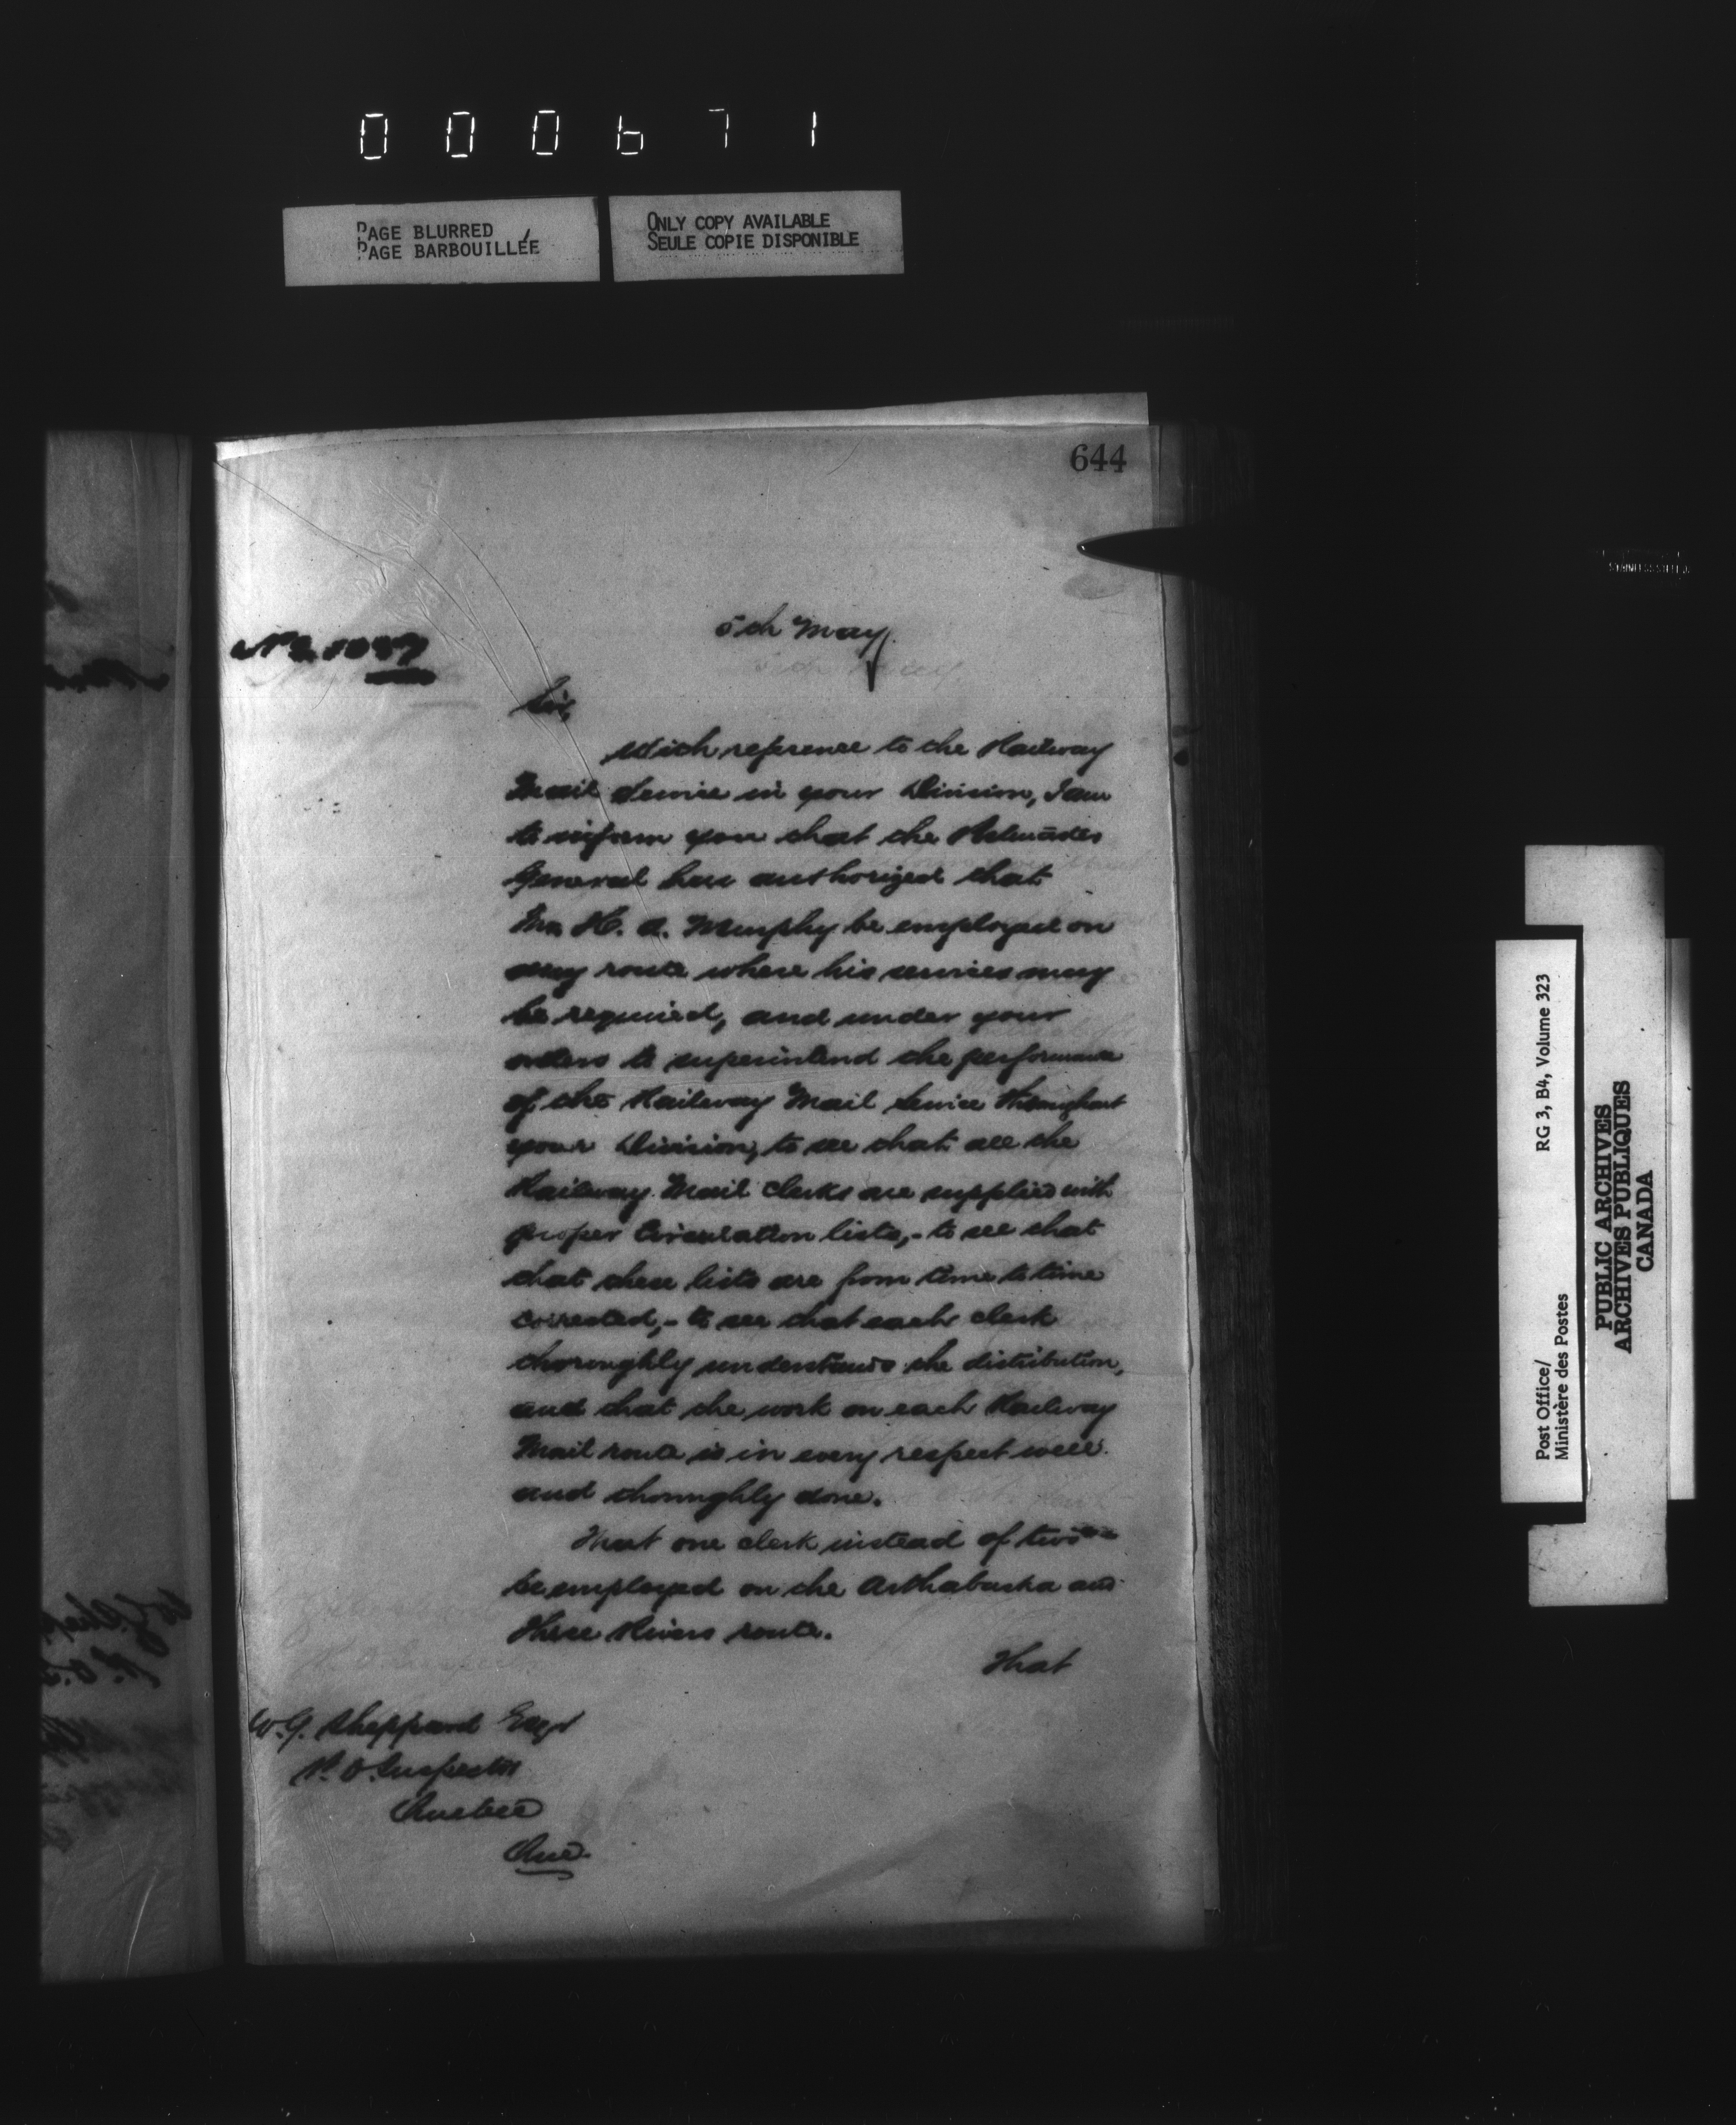 000671
PAGE BLURRED
PAGE BARBOUILLÉE
ONLY COPY AVAILABLE
SEULE COPIE DISPONIBLE
644
5th May
Sir,
With reference to the Railway
Mail Service in your Division, I am
to inform you that the
General has authorized that
Mr. H. A. Murphy be employed on
any route where his services may
be required, and under your
orders to superintend the performance
of the Railway Mail Service throughout
your Division, to see that all the
Railway Mail Clerks are supplied with
proper Circulation lists,- to see that
that these lists are from time to time
corrected,- to see that each clerk
thoroughly understands the distribution,
and that the work on each Railway
Mail route is in every respect well
and thoroughly done.
That one clerk instead of two
be employed on the Arthabaska and
Three Rivers route.
That
W. G. Sheppard Esqr
P. O. Inspector
Quebec
Que.
Post Office/
Ministère des Postes
RG 3, B4, Volume 323
PUBLIC ARCHIVES
ARCHIVES PUBLIQUES
CANADA